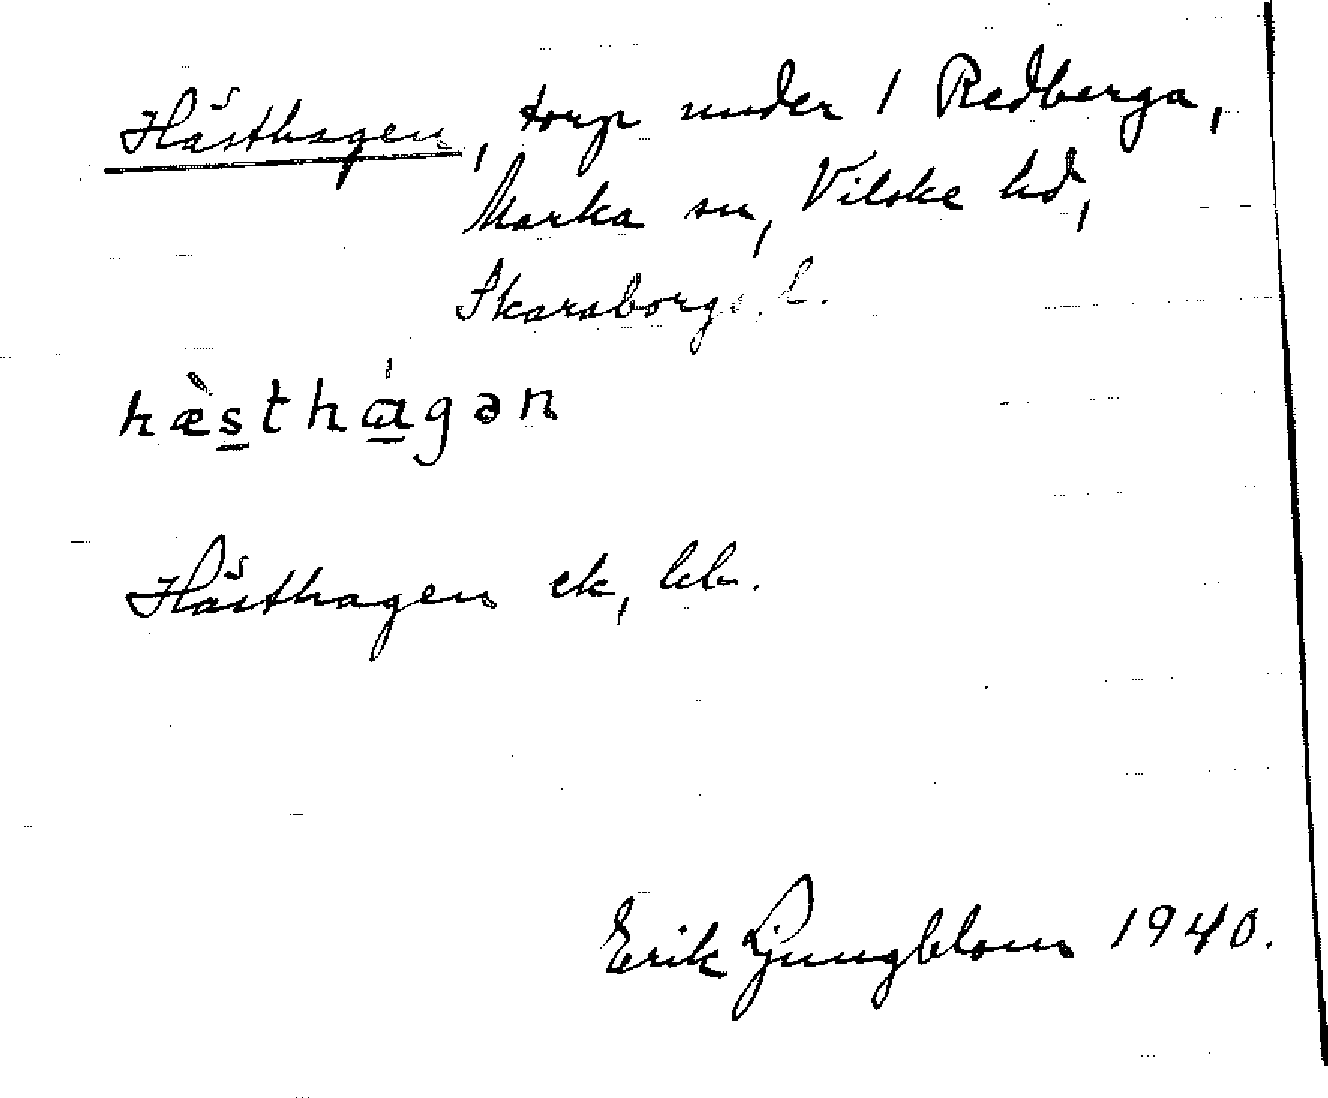 Hästhagen, torp under 1 Redberga,
Marka sn, Vilske hd,
Skaraborgs l.
hæ̀sth𝑎́gən
Hästhagen ek, lbk.
Erik Ljungblom 1940.